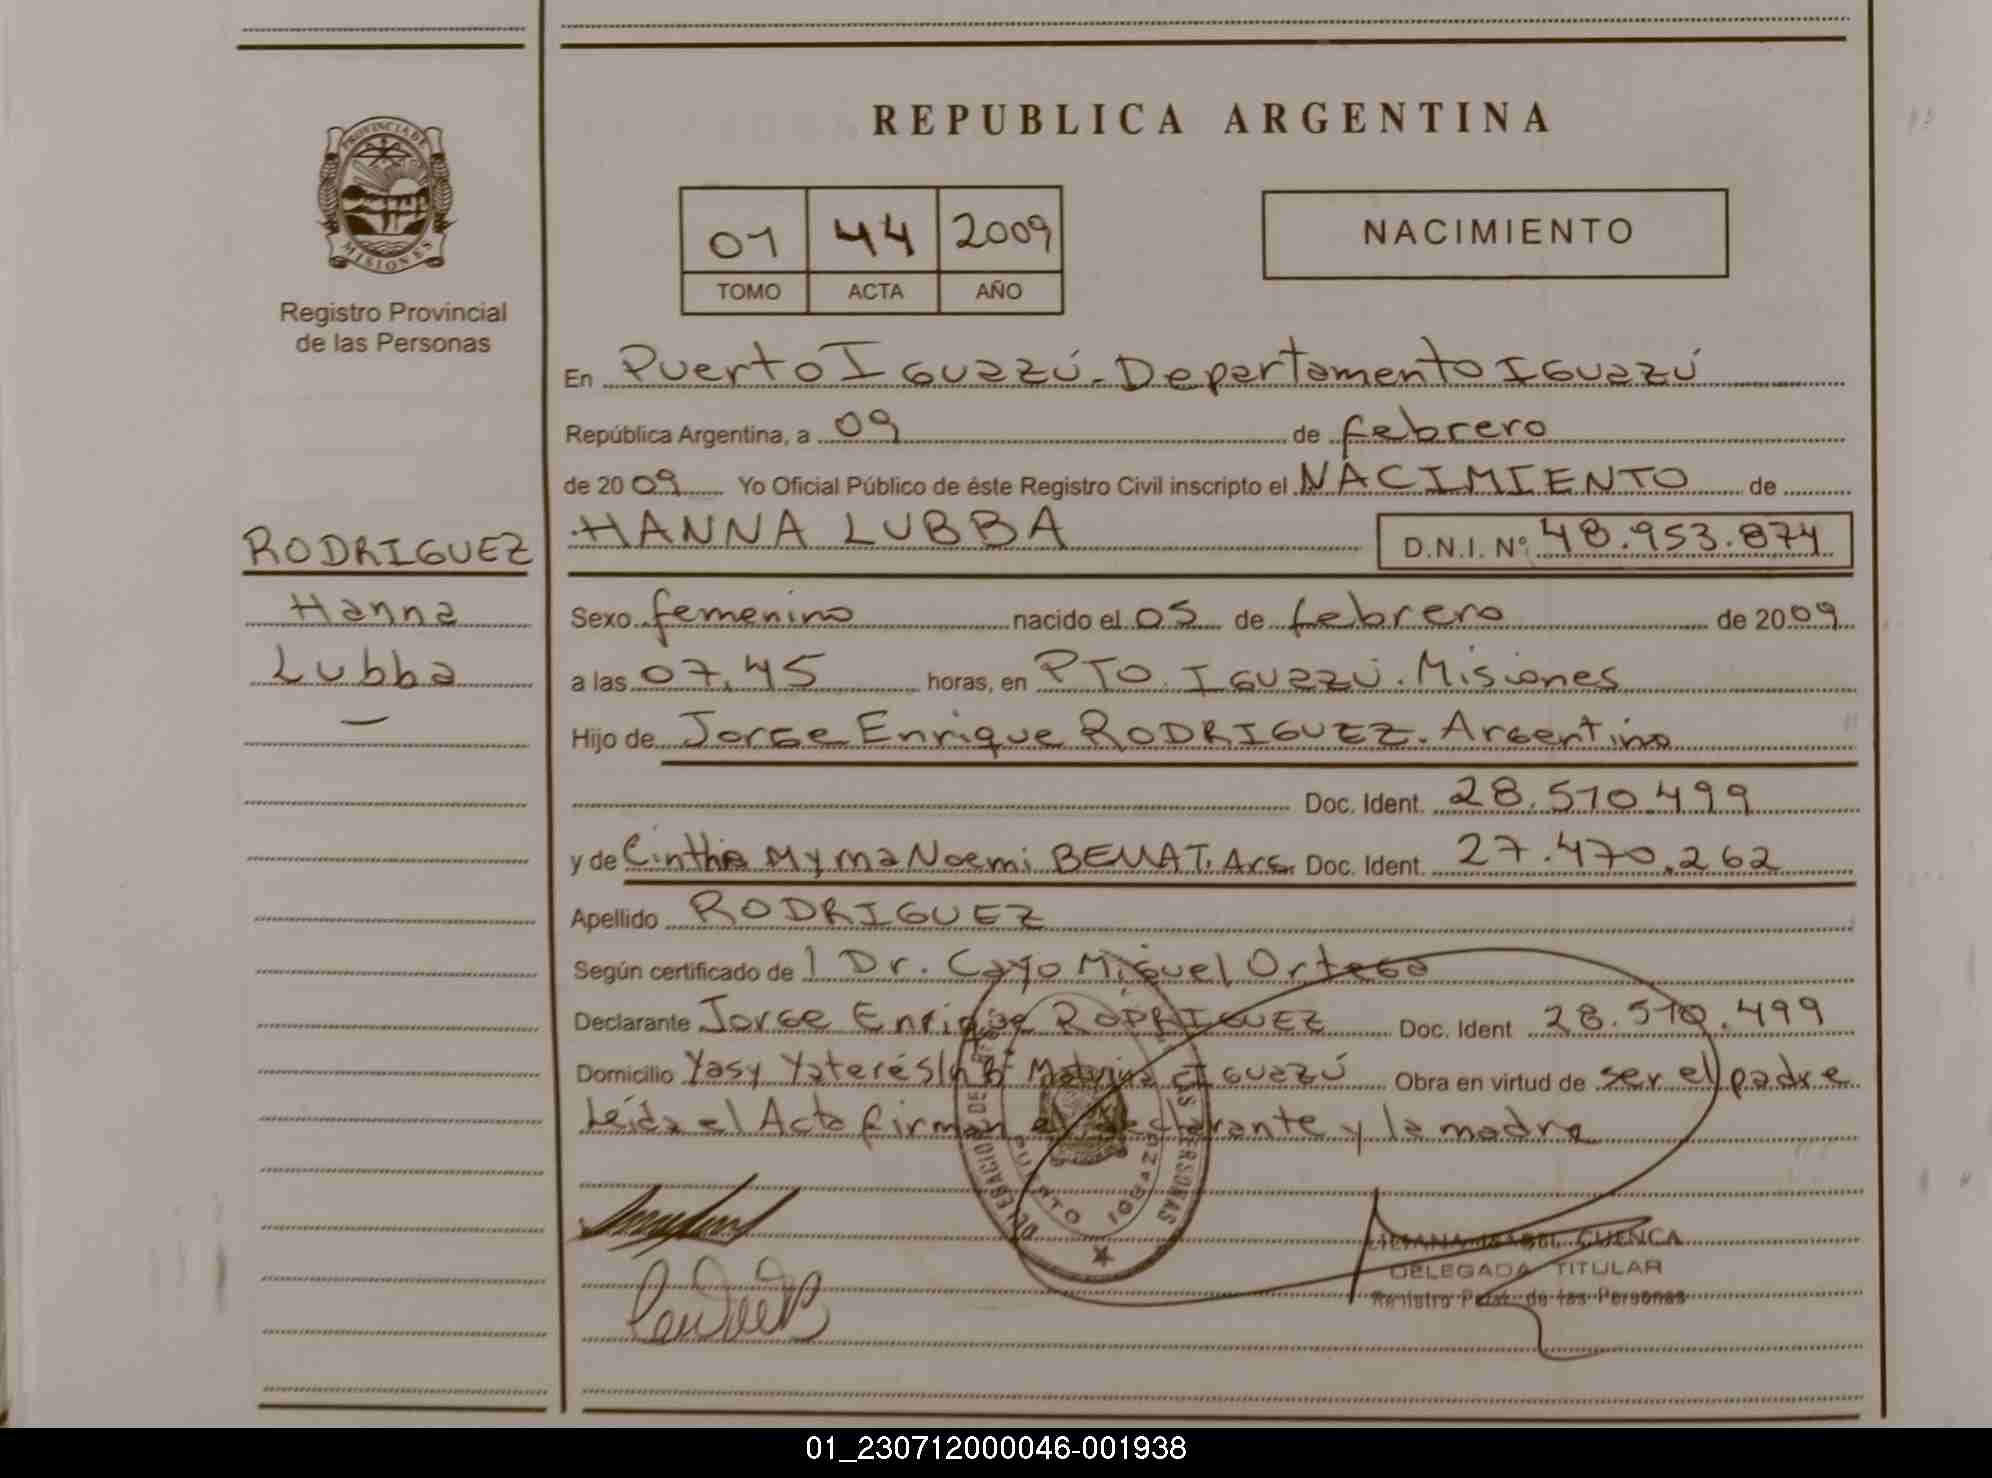 REPUBLICA ARGENTINA
PROVINCIA DE
MISIONES
Registro Provincial
de las Personas
01 44 2009
TOMO ACTA AÑO
NACIMIENTO
En Puerto Iguazú - Departamento Iguazú
República Argentina, a 09 de febrero
de 2009 Yo Oficial Público de éste Registro Civil inscripto el NACIMIENTO de
HANNA LUBBA D.N.I. Nº 48.953.874
RODRIGUEZ
Hanna
Lubba
Sexo femenino nacido el 05 de febrero de 2009
a las 07,45 horas, en PTO. Iguazú. Misiones
Hijo de Jorge Enrique RODRIGUEZ. Argentino
Doc. Ident. 28.510.499
y de Cinthia Myrna Noemi Arg. Doc. Ident. 27.470.262
Apellido RODRIGUEZ
Según certificado de 1 Dr. Cayo Miguel Ortega
Declarante Jorge Enrique RODRIGUEZ Doc. Ident 28.510.499
Domicilio Yasy Yateré S/n Bº Iguazú Obra en virtud de ser el padre
Leída el Acta firman el declarante y la madre
PUERTO IGUAZU
LILIANA ISABEL CUENCA
DELEGADA TITULAR
Registro Pcial. de las Personas
01_230712000046-001938